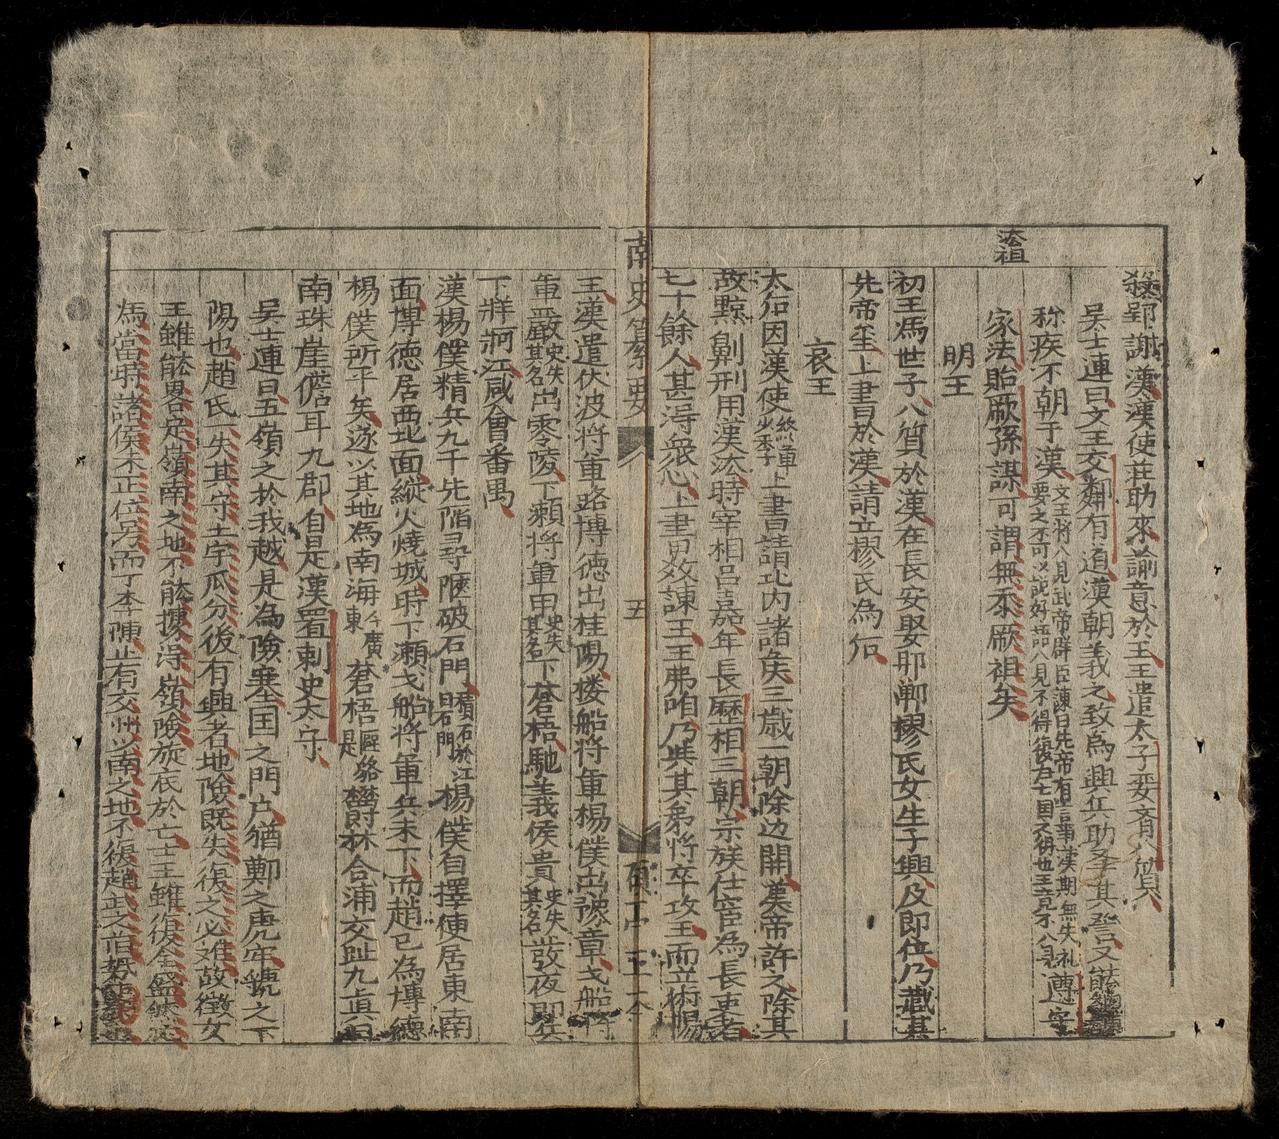 殺郢謝漢漢使莊助來諭意於王王遣太子嬰齊入質
吳士連曰文王交鄰有道漢朝義之致爲興兵助兵其讐又
称疾不朝于漢文王将入見武帝群臣諫曰先帝有言事漢期無失礼要之不可以說好語入見不得後歸亡國之勢也王竟不入見遵守
家法貽厥孫謀可謂無忝厥祖矣
明王
初王爲世子入質於漢在長安娶邯鄲樛氏女生子興及即位乃藏其
先帝玺上書於漢請立樛氏爲后
哀王
太后因漢使終軍少季上書請比内諸侯三歲一朝除边開漢帝許之除其
故黥劓刑用漢法時宰相呂嘉年長歷相三朝宗族仕宦爲長吏者
七十餘人甚得衆心上書又数諫王王弗听乃與其弟将卒攻王而立術陽
南史纂要
五
王漢遣伏波将軍路博德出桂陽楼船将軍楊僕出豫章戈船将
軍嚴史失其名出零陵下瀬将軍甲史失其名下蒼梧馳義侯貴史失其名發夜郎兵
下牂牁江咸會番禺
漢楊僕精兵九千先陷尋陿破石門積石於江曰石門楊僕自擇便居東南
面博德居西北面縱火燒城時下瀨戈船将軍兵未下而趙已爲博德
楊僕所平矣遂以其地爲南海今廣東蒼梧是駱欝林合浦交趾九眞日
南珠崖儋耳九郡自是漢置刺史太守
吳士連曰五嶺之於我越是爲險塞国之門户猶鄭之虎牢虢之下
陽也趙氏一失其守土宇瓜分後有興者地險既失復之必难故徵女
王雖能畧定嶺南之地不能據得嶺險旋底於亡士王雖復全盛然
爲當時諸侯未正位号而丁李陳止有交州以南之地不復趙武之舊勢